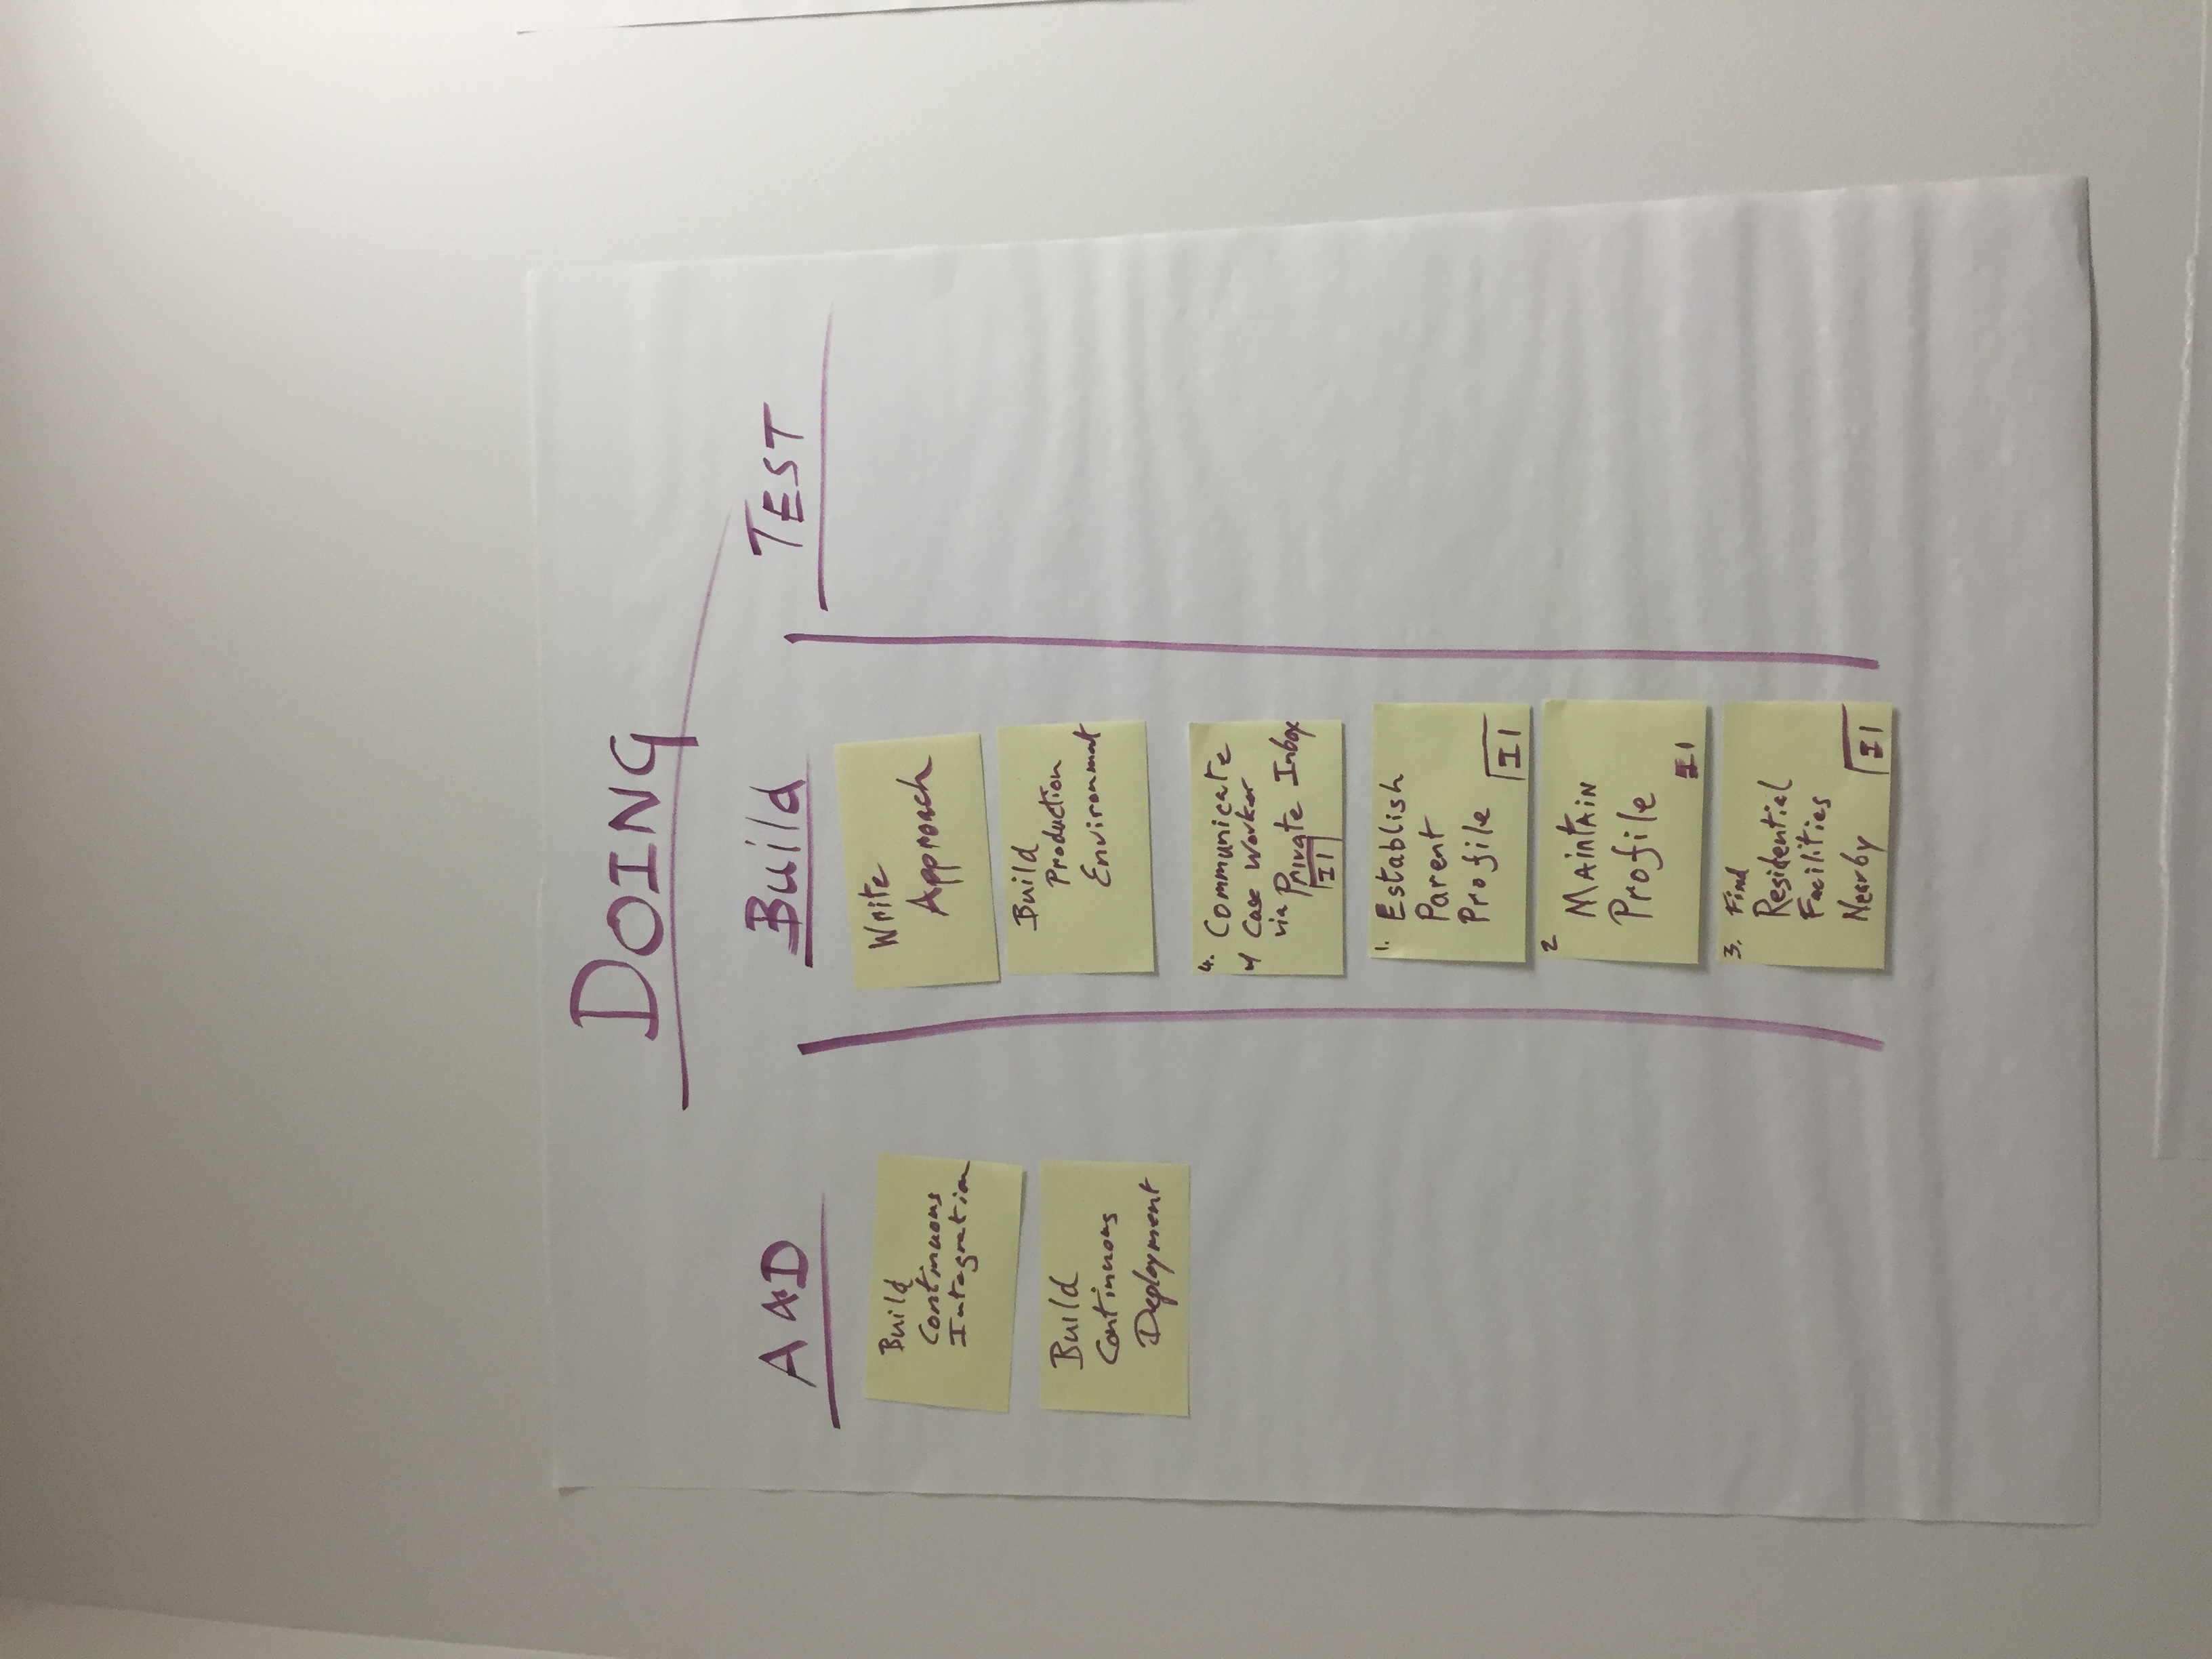 DOING
A&D
Build
Continuous
Integration
Build
Continuous
Deployment
Build
Write
Approach
Build
Production
Environmat
4. Communicate
w/ Case Worker
via Private Inbox
I1
1. Establish
Parent
Profile
I1
2
MAintAiN
Profile
I1
3. Find
Residential
Facilities
Nearby
I1
TEST